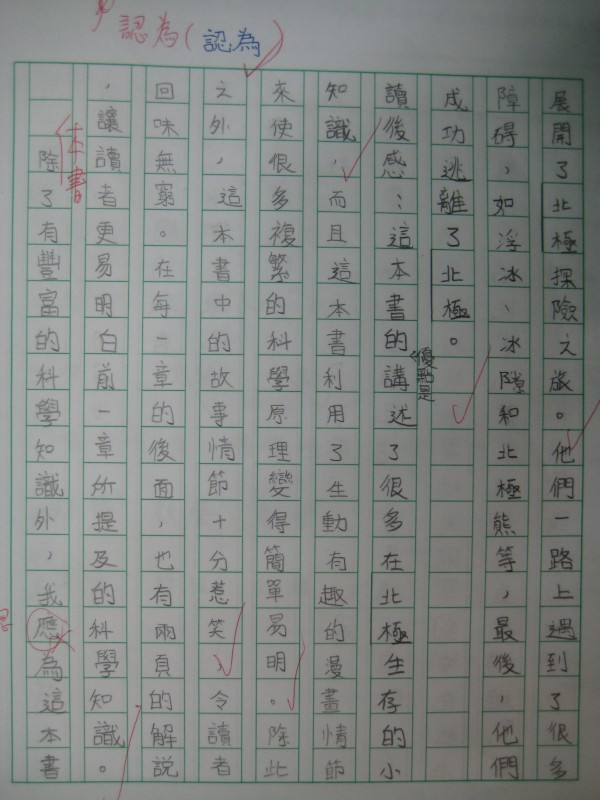 認為(認為)
展開了北極探險之旅。他們一路上遇到了很多
障碍，如浮冰、冰隙和北極熊等，最後，他們
成功逃離了北極。
讀後感：這本書的優點是講述了很多在北極生存的小
知識，而且這本書利用了生動有趣的漫畫情節
來使很多複繁的科學原理變得簡單易明。除此
之外，這本書中的故事情節十分惹笑，令讀者
回味無窮。在每一章的後面，也有兩頁的解說
，讓讀者更易明白前一章所提及的科學知識。
本書
除了有豐富的科學知識外，我應為這本書